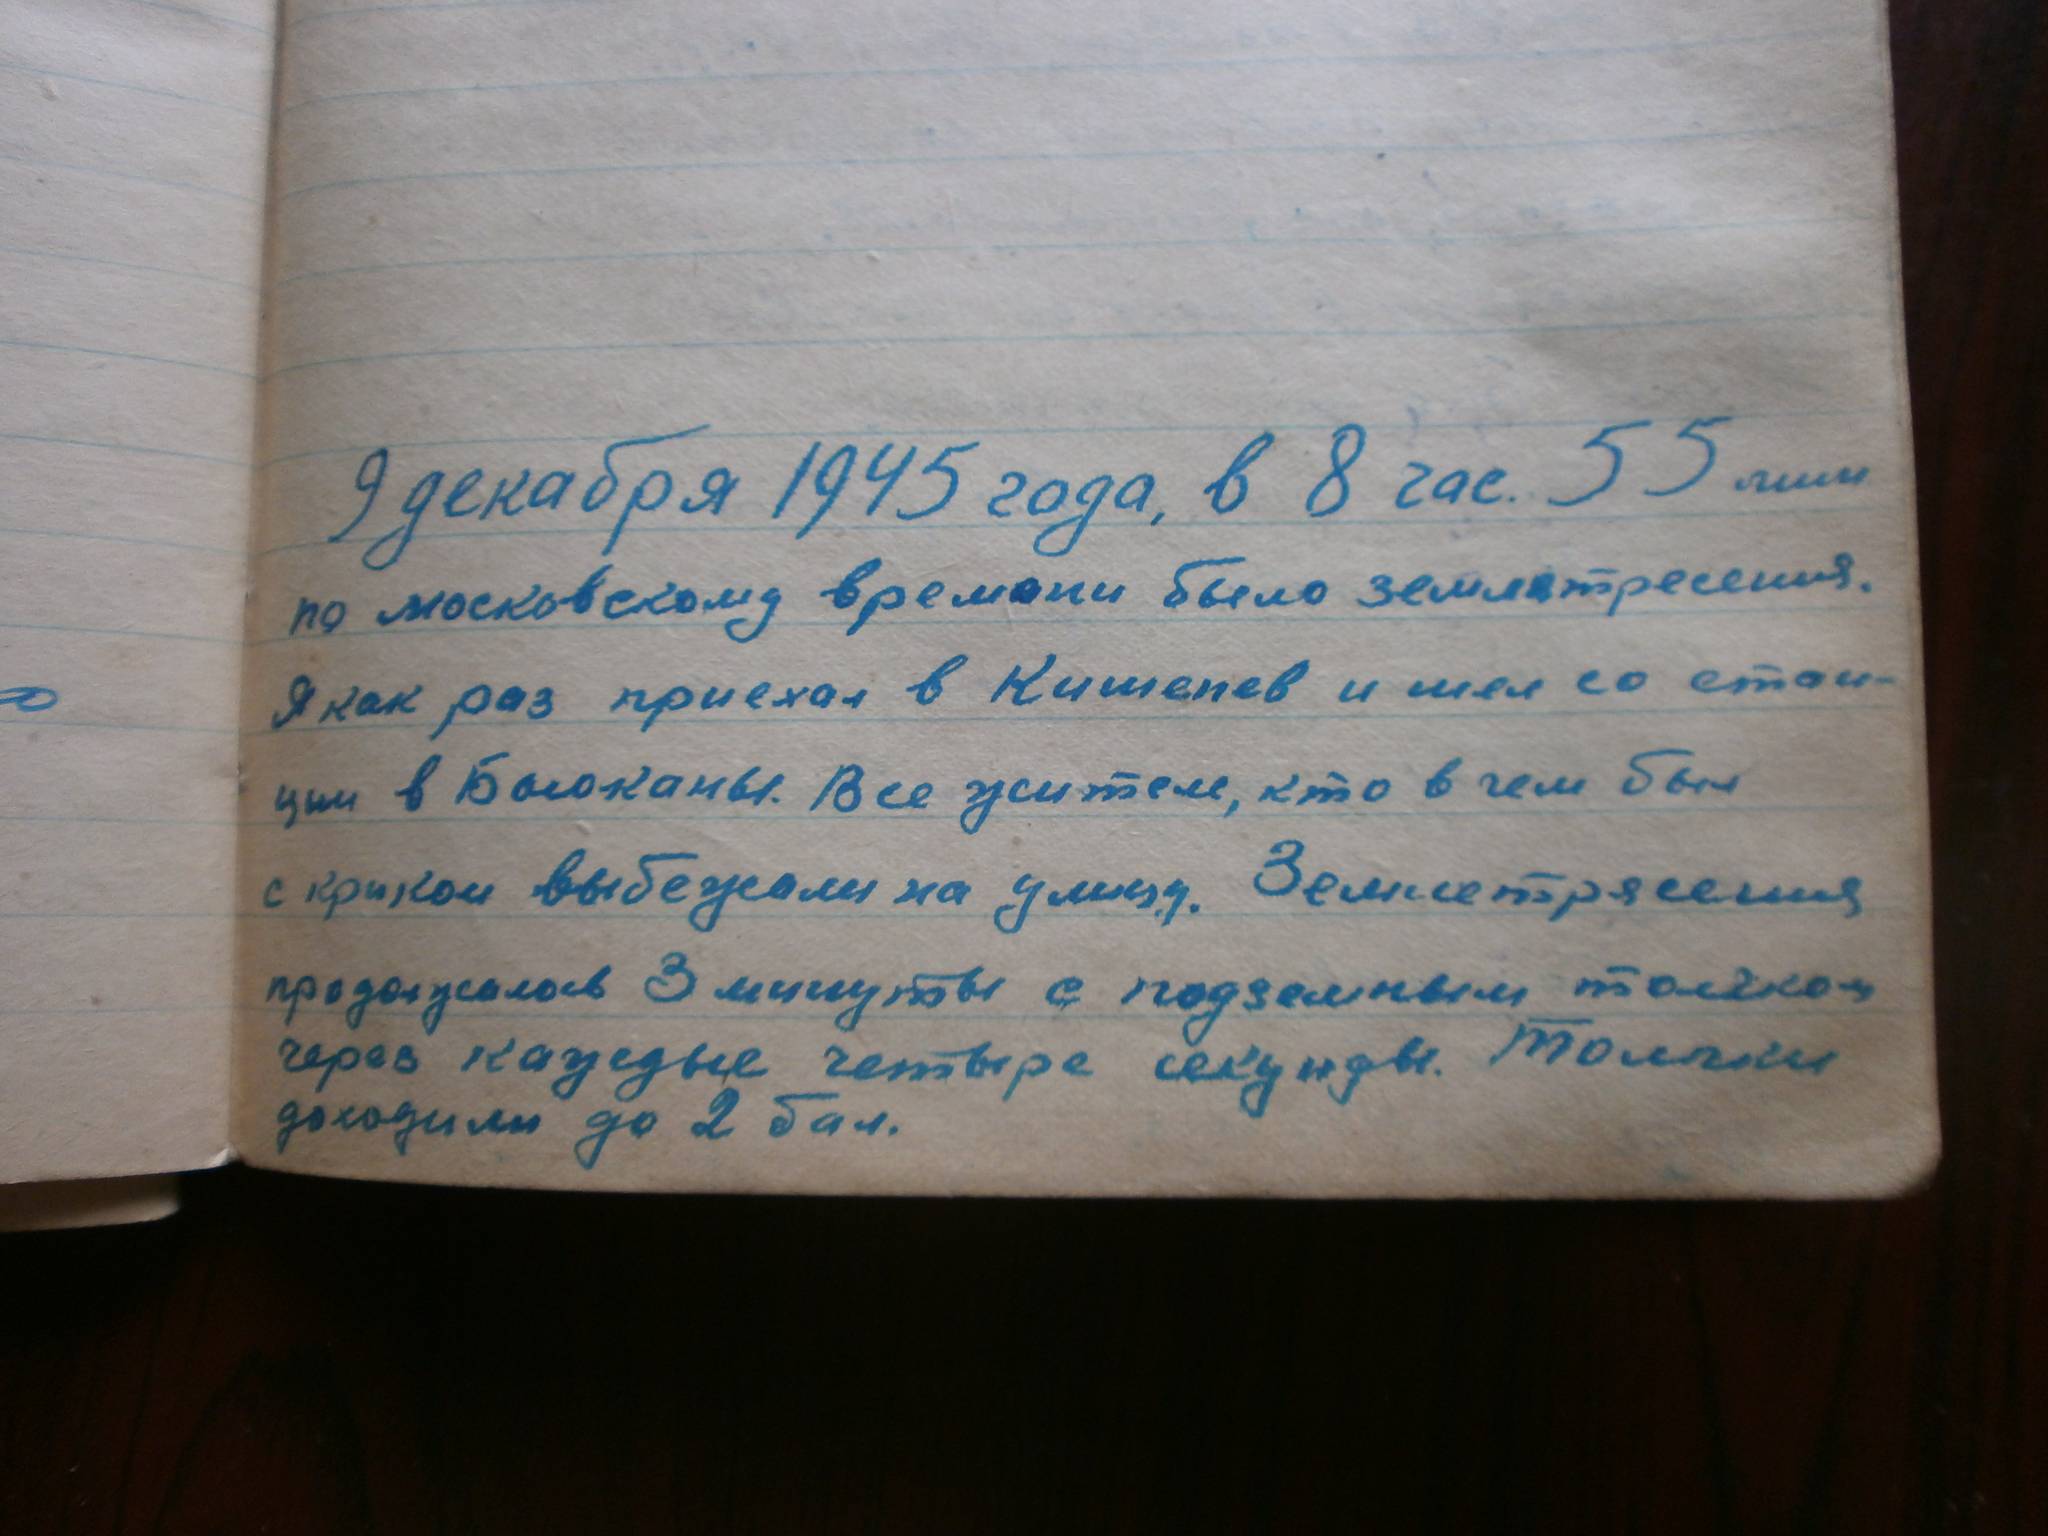 9 декабря 1945 года, в 8 час. 55 мин
по московскому времени было землятресения.
Я как раз приехал в Кишенев и шел со стан-
ции в Боюканы. Все жители, кто в чем был
с криком выбежали на улицу. Землетрясения
продолжалось 3 минуты с подземным толчком
через каждые четыре секунды. Толчки
доходили до 2 бал.